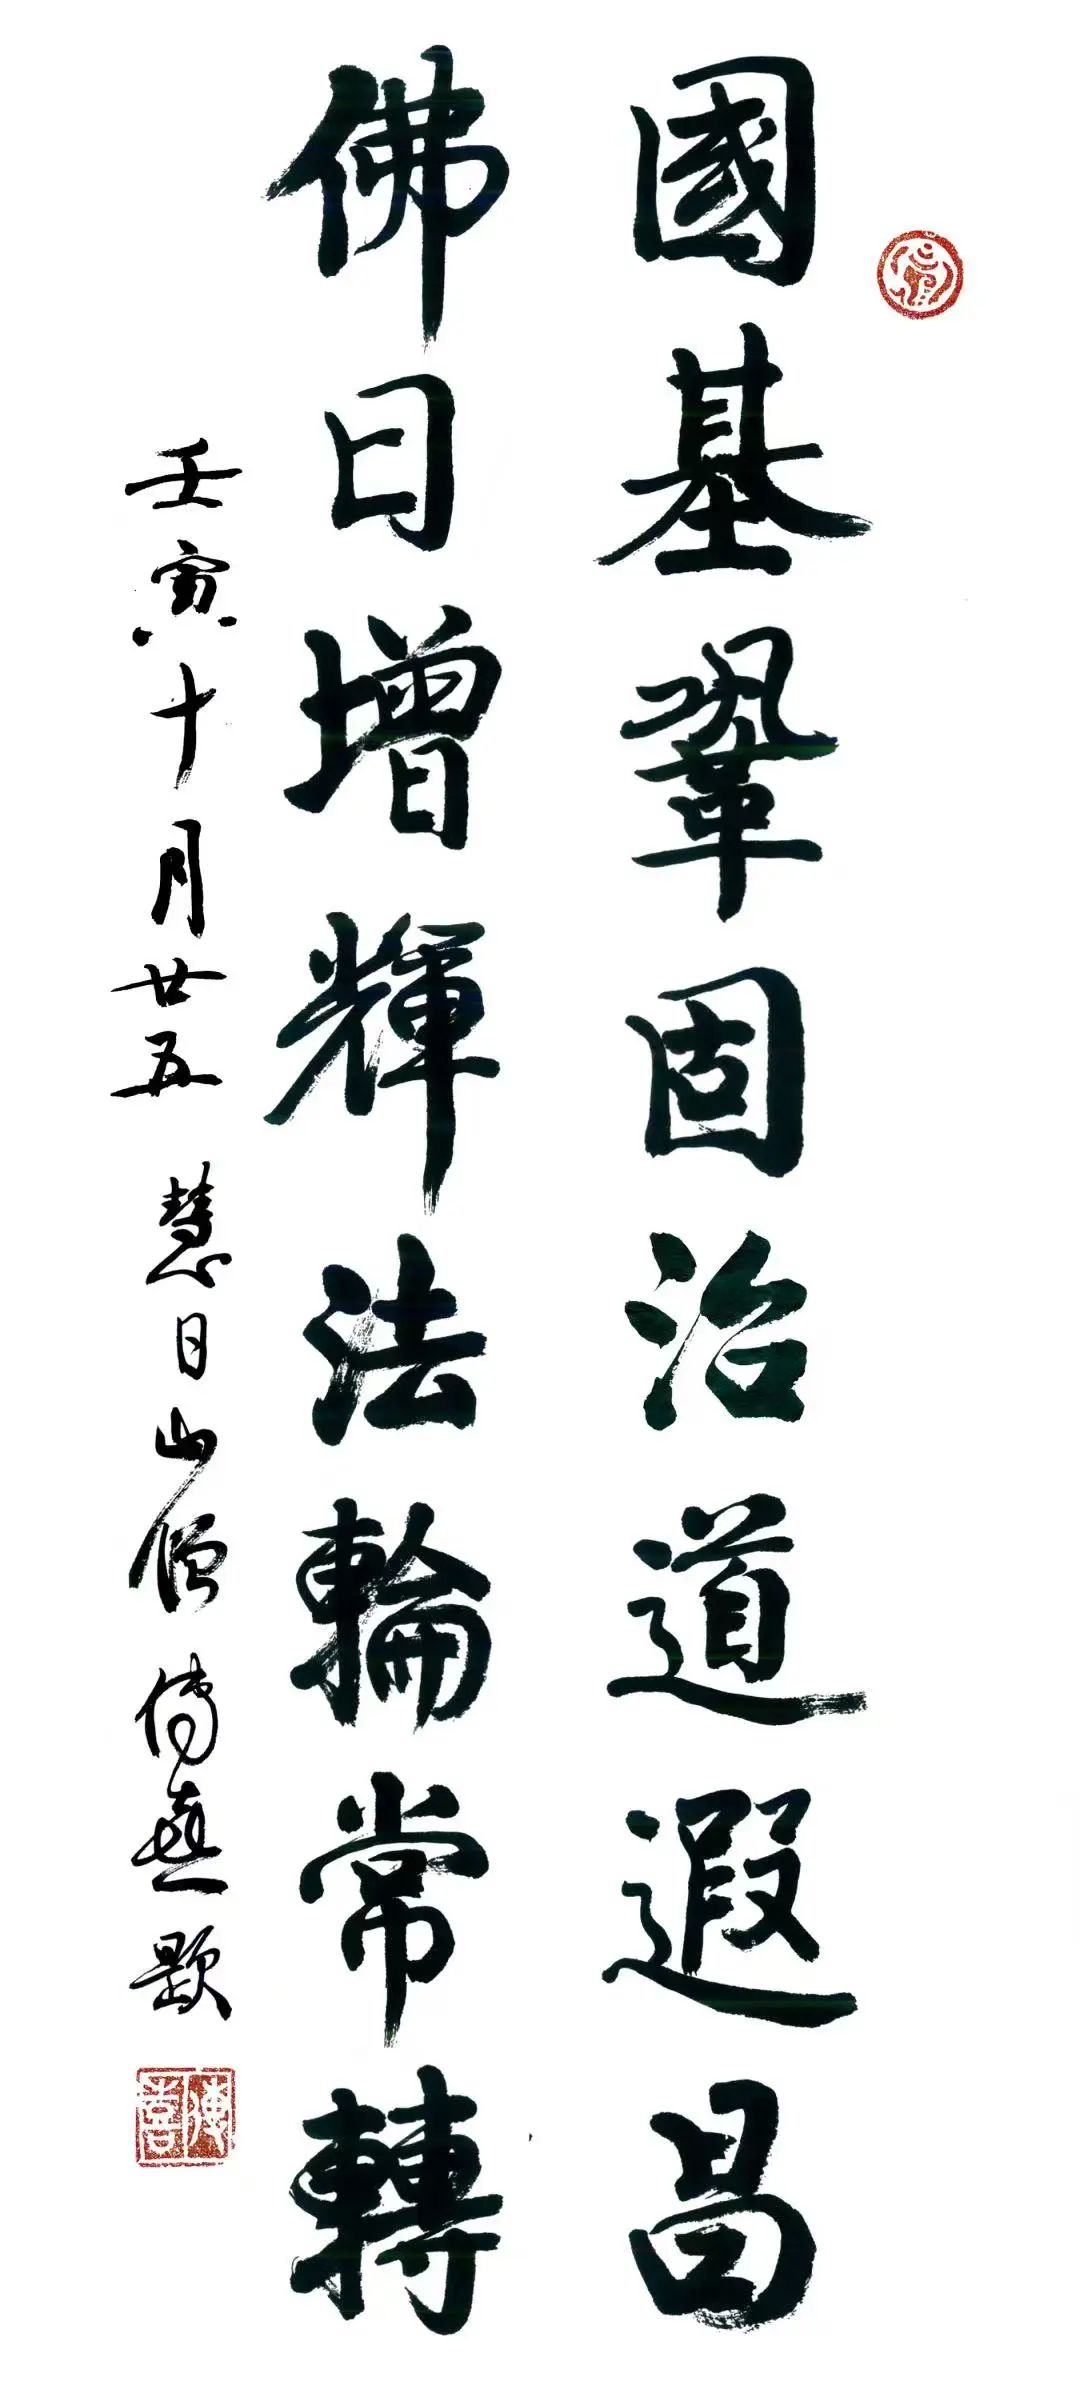 國基鞏固治道遐昌
佛日增輝法輪常轉
壬寅十月廿五 慧日山僧傳喜題
傳喜